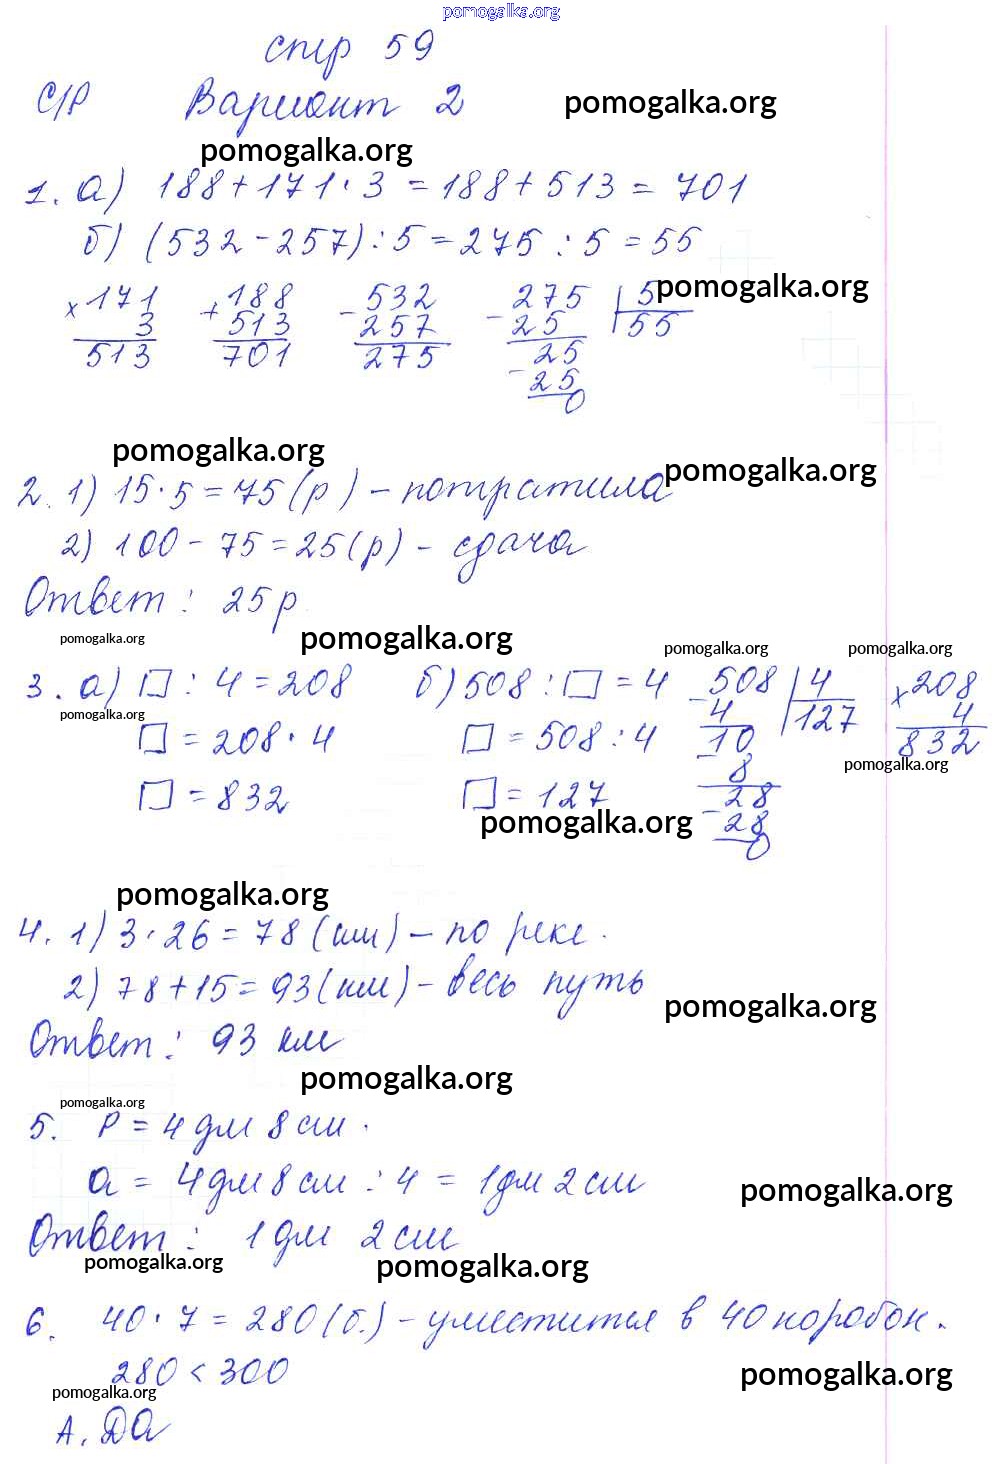 pomogalka.org
стр 59
С/Р Вариант 2 pomogalka.org
pomogalka.org
1. а) 188 + 171 · 3 = 188 + 513 = 701
б) (532 - 257) : 5 = 275 : 5 = 55
× 171 + 188 - 532 - 275 | 5 pomogalka.org
3 513 257 25 55
513 701 275 25
- 25
0
pomogalka.org
pomogalka.org
2. 1) 15 · 5 = 75 (р) - потратила
2) 100 - 75 = 25 (р) - сдача
Ответ: 25 р.
pomogalka.org pomogalka.org pomogalka.org pomogalka.org
3. а) □ : 4 = 208 б) 508 : □ = 4 - 508 | 4 × 208
pomogalka.org 4 127 4
□ = 208 · 4 □ = 508 : 4 - 10 832
8 pomogalka.org
□ = 832 □ = 127 - 28
pomogalka.org 28
0
pomogalka.org
4. 1) 3 · 26 = 78 (км) - по реке.
2) 78 + 15 = 93 (км) - весь путь
pomogalka.org
Ответ: 93 км
pomogalka.org
pomogalka.org
5. P = 4 дм 8 см.
a = 4 дм 8 см : 4 = 1 дм 2 см
pomogalka.org
Ответ: 1 дм 2 см
pomogalka.org pomogalka.org
6. 40 · 7 = 280 (б.) - уместится в 40 коробок.
280 < 300
pomogalka.org
pomogalka.org
А. Да